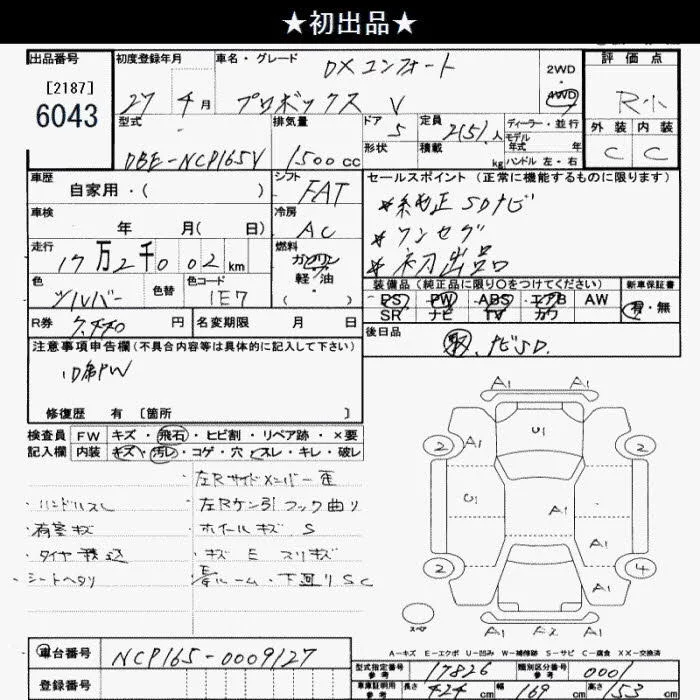 ★初出品★
出品番号 初度登録年月 車名・グレード 評価点
DXコンフォート
[2187]
6043
27年4月 プロボックス V 2WD 4WD R小
型式 排気量 ドア 定員 ディーラー・並行 外装 内装
5 2(5)人 モデル年式 年 C C
DBE-NCP165V 1500cc 形状 積載 kg ハンドル 左・右
車歴 シフト セールスポイント(正常に機能するものに限ります)
自家用・( ) FAT *純正SDナビ
車検 冷房 *ワンセグ
年 月( 日) AC *初出品
走行 燃料
17万2千002km ガソリン 軽・油 ・( )
色 色替 色コード 装備品(純正品に限り○をつけてください) 新車保証書
シルバー 1E7 PS PW ABS エアB AW 有・無
SR ナビ TV カワ
R券 7,440円 名変期限 月 日 後日品
取、ナビSD.
注意事項申告欄(不具合内容等は具体的に記入して下さい)
修復歴 有 [箇所 ]
検査員 FW キズ・飛石・ヒビ割・リペア跡・×要
記入欄 内装 キズ・汚レ・コゲ・穴・スレ・キレ・破レ
左Rサイドメンバー歪
・ハンドルスレ 左Rケン引フック曲り
・荷室キズ ・ホイールキズ S
・キズ E スリキズ
・シートヘタリ ルーム・下廻りSC
A1 A1
U1
2 A1 2
U1 A1
A1
2 A1 4
スペア A1 A2 A1
A-キズ E-エクボ U-凹み W-補修跡 S-サビ C-腐食 XX-交換済
車台番号 NCP165-0009127
登録番号
型式指定番号 参考 17826 類別区分番号 参考 0001
車庫証明用 参考 長さ 424cm 幅 169cm 高さ 153cm